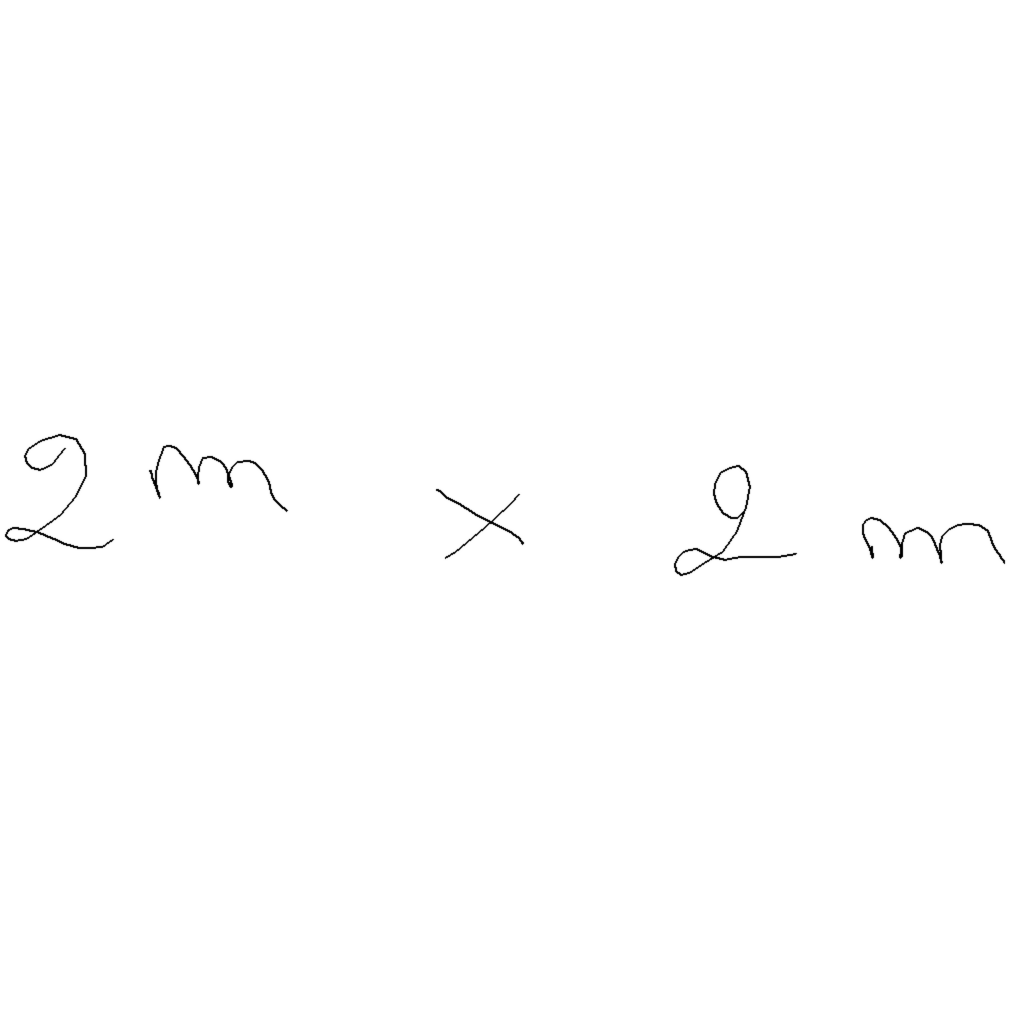 2 m × 2 m